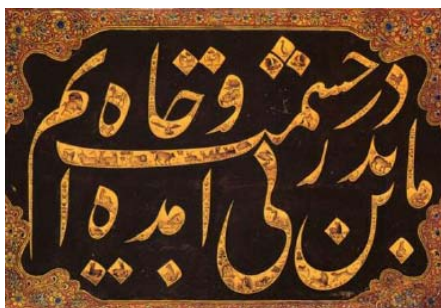 ما بدین در نه پی حشمت و جاه آمده ایم